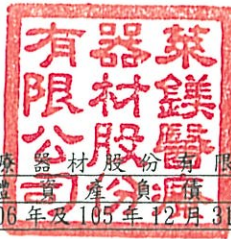 萊鎂醫療
器材股份
有限公司
療器材股份有限
體資產負債
06年及105年12月31